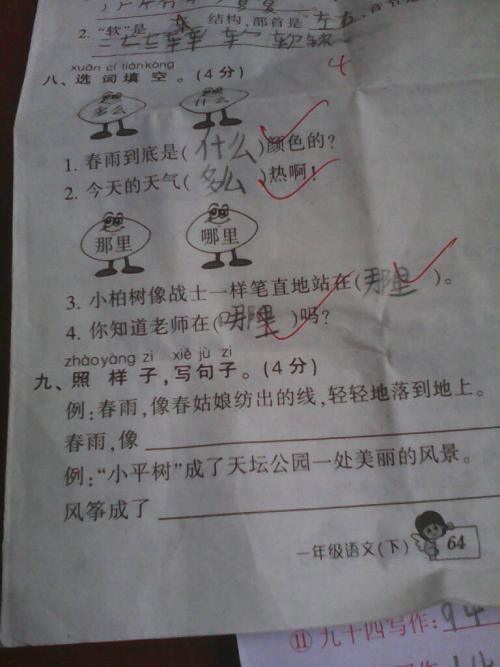 2. “软”是 结构，部首是 左右
xuǎn cí tiánkòng
八、选 词 填 空。(4分)
4
多么 什么
1. 春雨到底是( 什么 )颜色的?
2. 今天的天气( 多么 )热啊!
那里 哪里
3. 小柏树像战士一样笔直地站在( 那里 )。
4. 你知道老师在( 哪里 )吗?
zhàoyàng zi xiě jù zi
九、照 样 子，写句子。(4分)
例：春雨，像春姑娘纺出的线，轻轻地落到地上。
春雨，像
例：“小平树”成了天坛公园一处美丽的风景。
风筝成了
一年级语文(下) 64
⑪ 九十四写作: 94